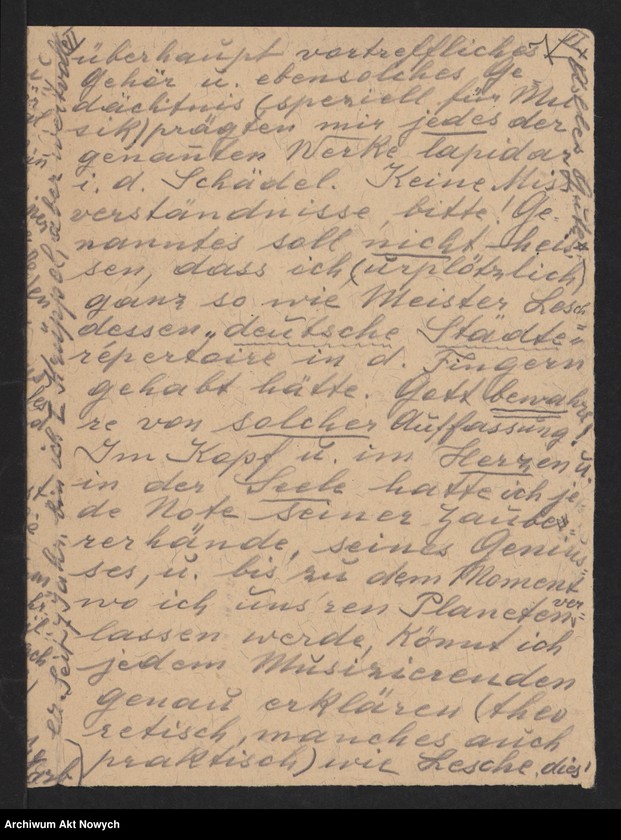 überhaupt vortreffliches
Gehör u. ebensolches Ge-
dächtnis (speziell für Mu
sik) prägten mir jedes der
genannten Werke lapidar
i. d. Schädel. Keine Miss
verständnisse, bitte! Ge-
nanntes soll nicht heis-
sen, dass ich (urplötzlich)
ganz so wie Meister Lesch
dessen „deutsche Städte"
répertoire in d. Fingern
gehabt hätte. Gott bewah
re von solcher Auffassung!
Im Kopf u. im Herzen u.
in der Seele hatte ich je
de Note seiner Zaube
rerhände, seines Genius-
ses, u. bis zu dem Moment
wo ich uns'ren Planeten ver-
lassen werde, könnt ich
jedem Musizierenden
genau erklären (theo
retisch, manches auch
praktisch) wie Lesche, dies!
er Seit 7 Jahr. bin ich Krüppel, aber
Archiwum Akt Nowych